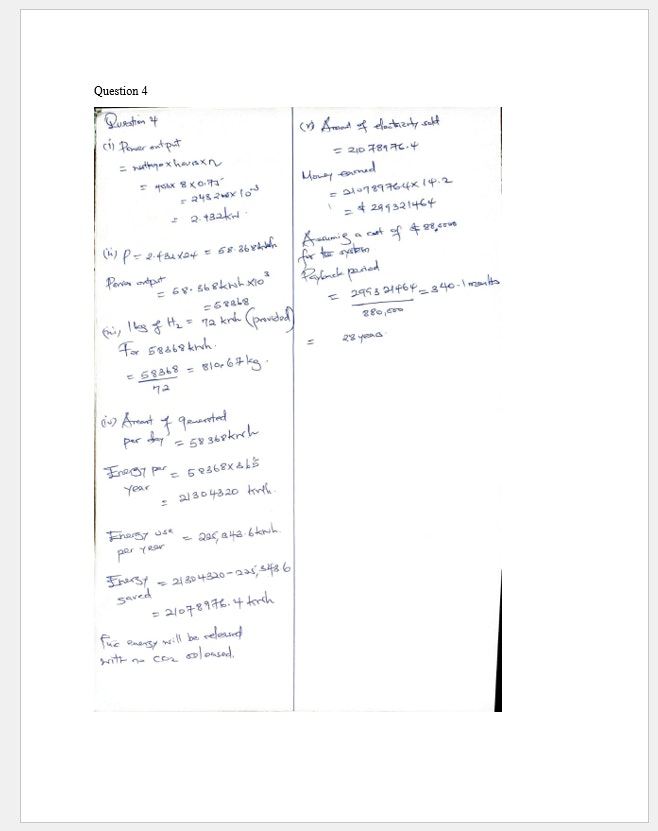 Question 4
Question 4
(i) Power output
= wattage x hours x n
= 405x 8 x 0.75
= 2432 x 10⁻³
= 2.432kw.
(ii) P = 2.432x24 = 58.368kwh
Power output
= 58.368kwh x10³
= 58368
(iii) 1kg of H₂ = 72 kwh (provided)
For 58368kwh.
= 58368 = 810.67kg.
72
(iv) Amount of generated
per day = 58368kwh
Energy per = 58368x365
Year
= 21304320 kwh.
Energy use = 225,343.6kwh.
per year
Energy = 21304320-225,343.6
saved
= 21078976.4 kwh
The energy will be released
with no CO₂ released.
(v) Amount of electricity sold
= 21078976.4
Money earned
= 210789764x 14.2
= $ 299321464
Assuming a cost of $ 88,0000
for the system
Payback period
= 299321464 = 340.1 months
880,000
= 28 years.